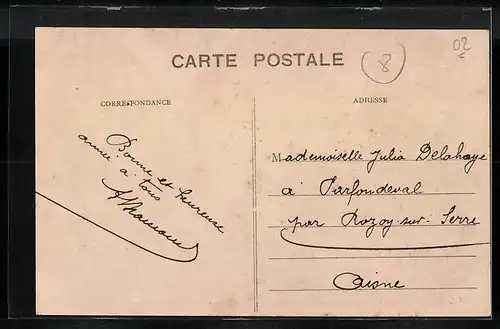 CARTE POSTALE
8
02
CORRESPONDANCE
ADRESSE
Bonne et heureuse
année à tous
Mademoiselle Julia Delahaye
à Parfondeval
par Rozoy-sur-Serre
Aisne